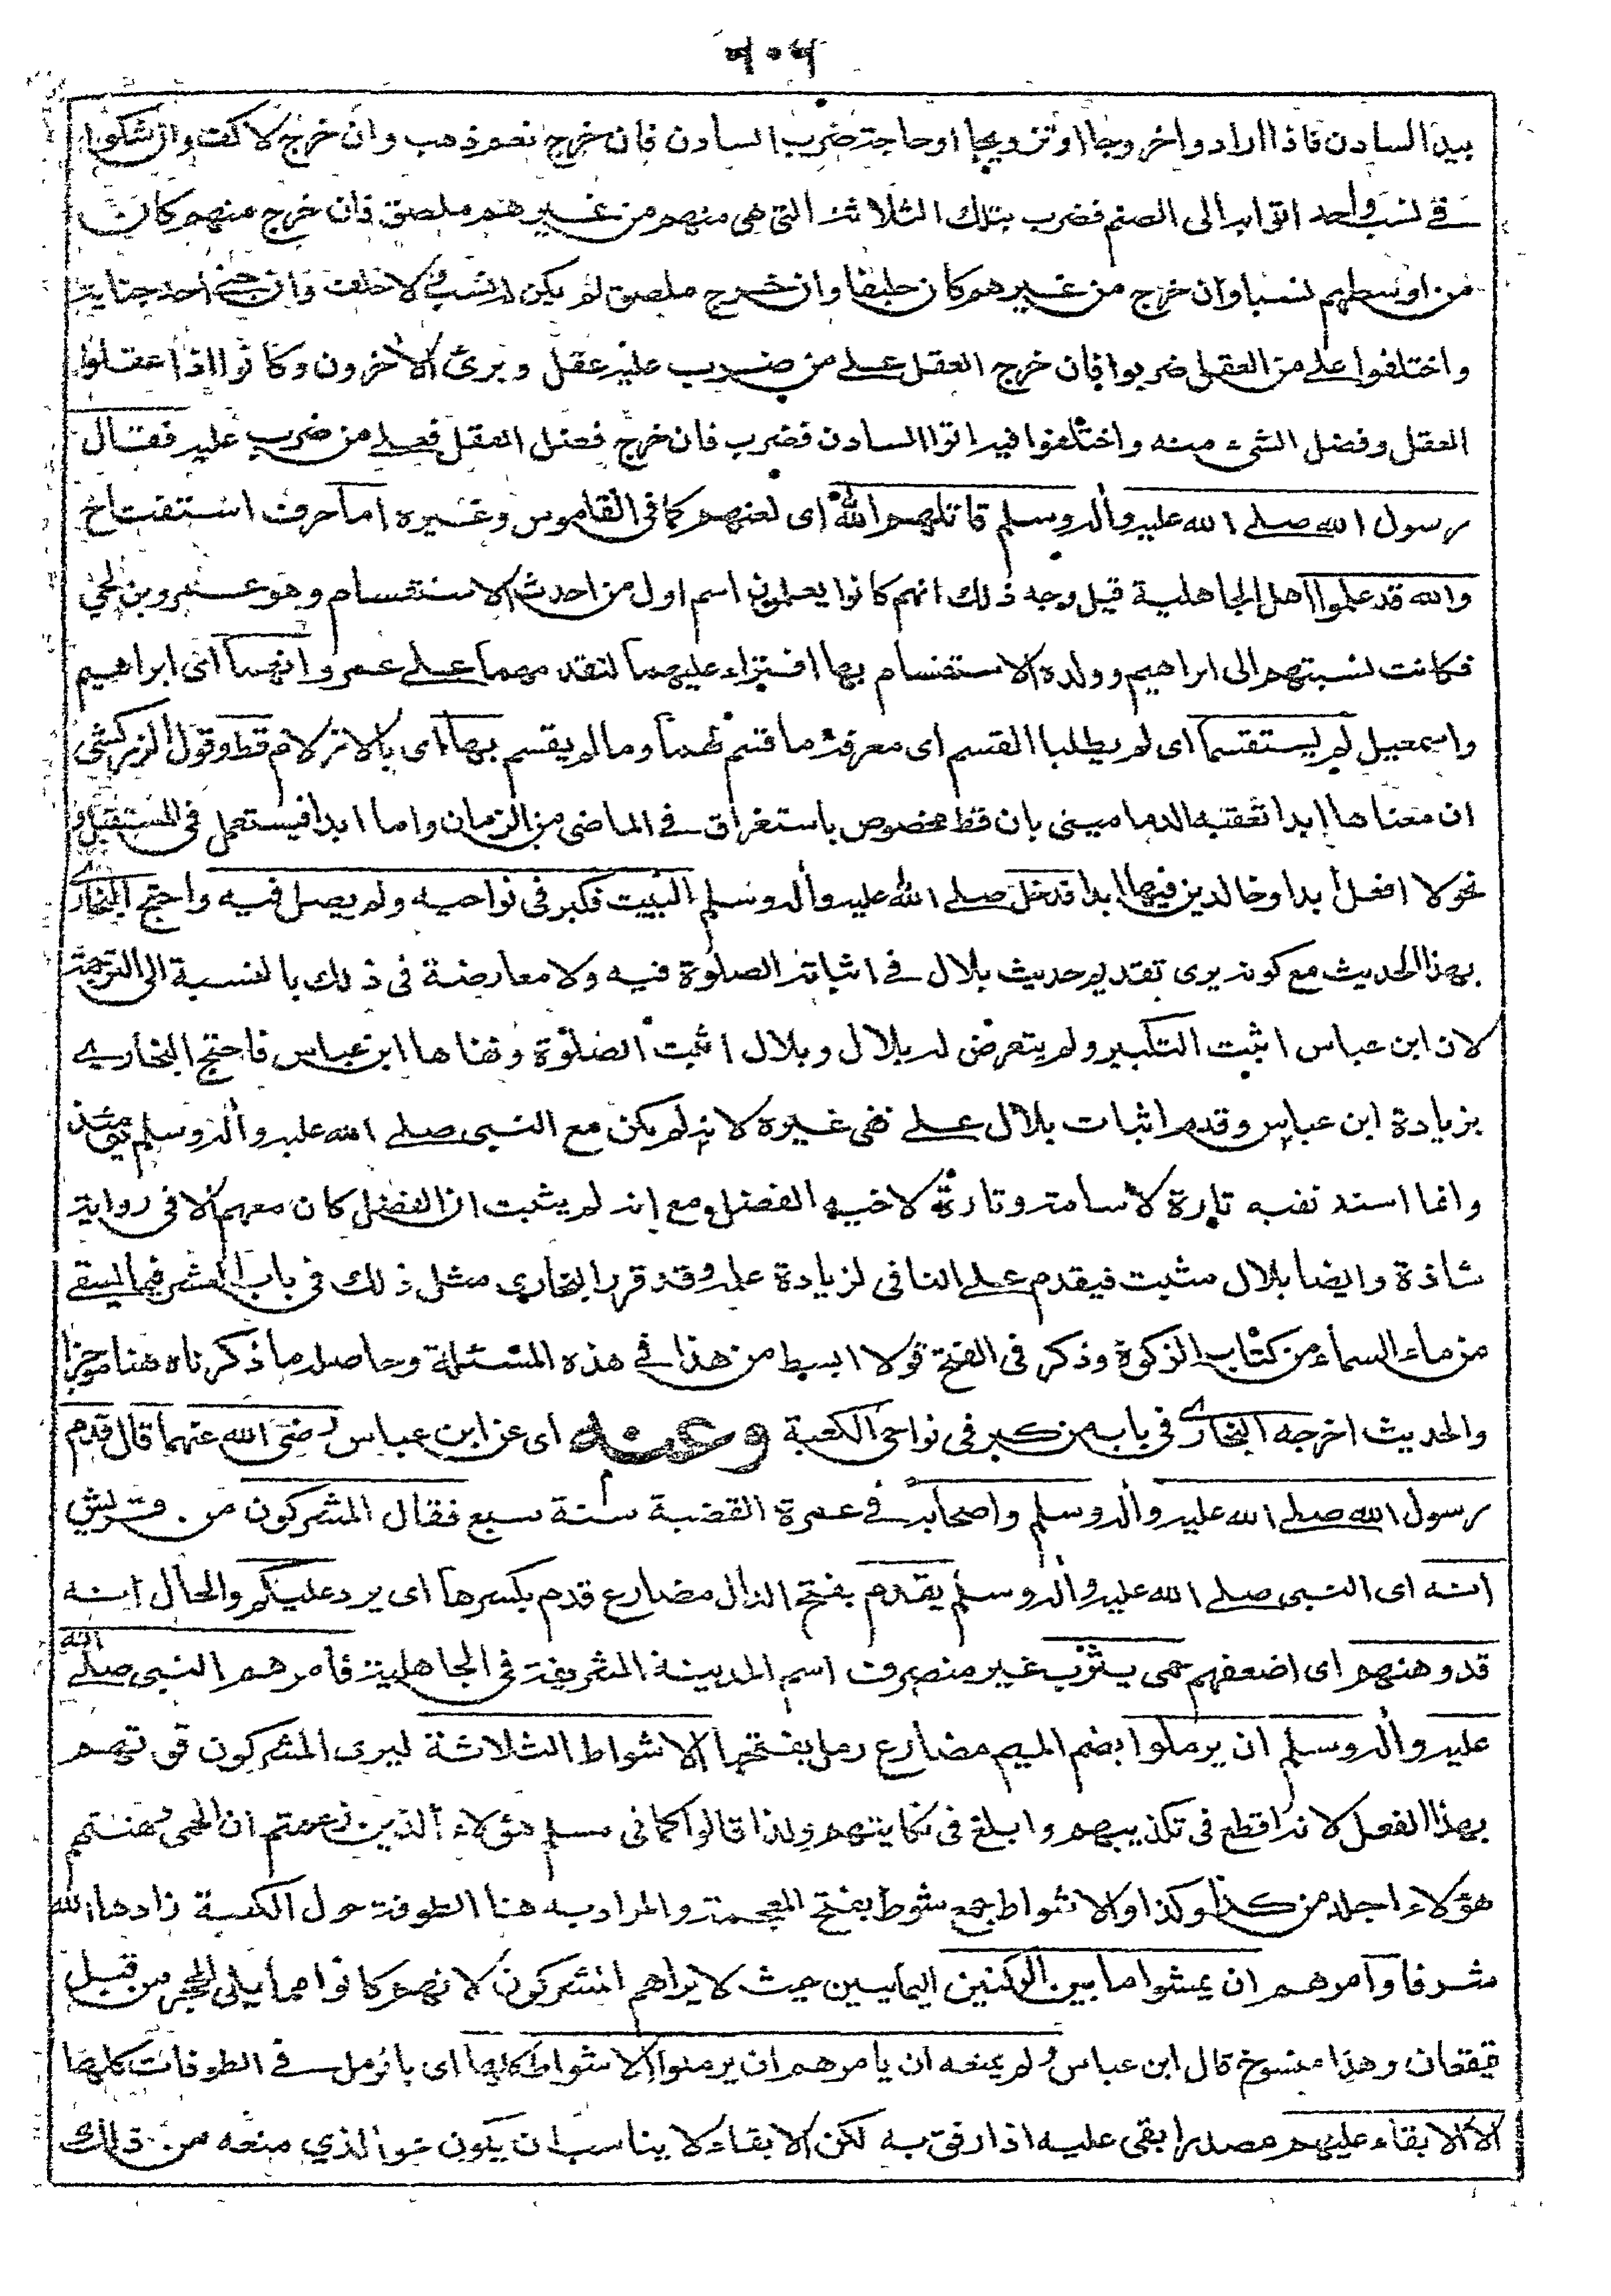 ٧٠٧
بيد السادن فاذا ارادوا خروجا او تزويجا او حاجة ضرب السادن فان خرج نعم ذهب وان خرج لا كف وان شكوا
في نسب واحد اتوا به الى الصنم فضرب بتلك الثلاثة التي هي منهم من غيرهم ملصق فان خرج منهم كان
من اوسطهم نسبا وان خرج من غيرهم كان حليفا وان خرج ملصق لم يكن له نسب ولا حلف وان جنى احد جناية
واختلفوا على من العقل ضربوا فان خرج العقل على من ضرب عليه عقل وبرئ الآخرون وكانوا اذا عقلوا
العقل وفضل الشيء منه واختلفوا فيه اتوا السادن فضرب فان خرج فضل العقل فعلى من ضرب عليه فقال
رسول الله صلى الله عليه وآله وسلم قاتلهم الله اى لعنهم كما فى القاموس وغيره اما حرف استفتاح
والله قد علموا اهل الجاهلية قيل وجه ذلك انهم كانوا يعلمون اسم اول من احدث الاستقسام وهو عمرو بن لحي
فكانت نسبتهم الى ابراهيم وولده الاستقسام بها افتراء عليهما لتقدمهما على عمرو انهما اى ابراهيم
واسمعيل لم يستقسما اى لم يطلبا القسم اى معرفة ما قسم لهما وما لم يقسم بها اى بالازلام قط وقول الزركشى
ان معناها ابدا تعقبه الدماميني بان قط مخصوص باستغراق في الماضى من الزمان واما ابدا فيستعمل فى المستقبل و
نحو لا افعل ابدا وخالدين فيها ابدا فدخل صلى الله عليه وآله وسلم البيت فكبر فى نواحيه ولم يصل فيه واحتج البخارى
بهذا الحديث مع كونه يرى تقديم حديث بلال في اثباته الصلوة فيه ولا معارضة فى ذلك بالنسبة الى الترجمة
لان ابن عباس اثبت التكبير ولم يتعرض له بلال وبلال اثبت الصلوة ونفاها ابن عباس فاحتج البخاري
بزيادة ابن عباس وقدم اثبات بلال على نفى غيره لانه لم يكن مع النبى صلى الله عليه وآله وسلم يومئذ
وانما اسند نفيه تارة لاسامة وتارة لاخيه الفضل ومع انه لم يثبت ان الفضل كان معهم الا فى رواية
شاذة وايضا بلال مثبت فيقدم على النافى لزيادة علمه وقد قرر البخارى مثل ذلك فى باب العشر فيما يسقى
من ماء السماء من كتاب الزكوة وذكر فى الفتح قولا ابسط من هذا فى هذه المسئلة وحاصله ما ذكرناه هنا موجزا
والحديث اخرجه البخارى فى باب من كبر فى نواحى الكعبة وعنه اى عن ابن عباس رضى الله عنهما قال قدم
رسول الله صلى الله عليه وآله وسلم واصحابه في عمرة القضية سنة سبع فقال المشركون من قريش
انه اى النبى صلى الله عليه وآله وسلم يقدم بفتح الدال مضارع قدم بكسرها اى يرد عليكم والحال انه
قد وهنهم اى اضعفهم حمى يثرب غير منصرف اسم المدينة الشريفة فى الجاهلية فامرهم النبى صلى الله
عليه وآله وسلم ان يرملوا بضم الميم مضارع رمل بفتحها الاشواط الثلاثة ليرى المشركون قوتهم
بهذا الفعل لانه اقطع فى تكذيبهم وابلغ فى نكايتهم ولذا قالوا كما فى مسلم هؤلاء الذين زعمتم ان الحمى وهنتهم
هؤلاء اجلد من كذا وكذا والاشواط جمع شوط بفتح المعجمة والمراد به هنا الطوفة حول الكعبة زادها الله
شرفا وامرهم ان يمشوا ما بين الركنين اليمانيين حيث لا يراهم المشركون لانهم كانوا مما يلى الحجر من قبل
قيقعان وهذا منسوخ قال ابن عباس ولم يمنعه ان يامرهم ان يرملوا الاشواط كلها اى بالرمل في الطوفات كلها
الا الابقاء عليهم مصدر ابقى عليه اذا رفق به لكن الابقاء لا يناسب ان يكون هو الذي منعه من ذلك